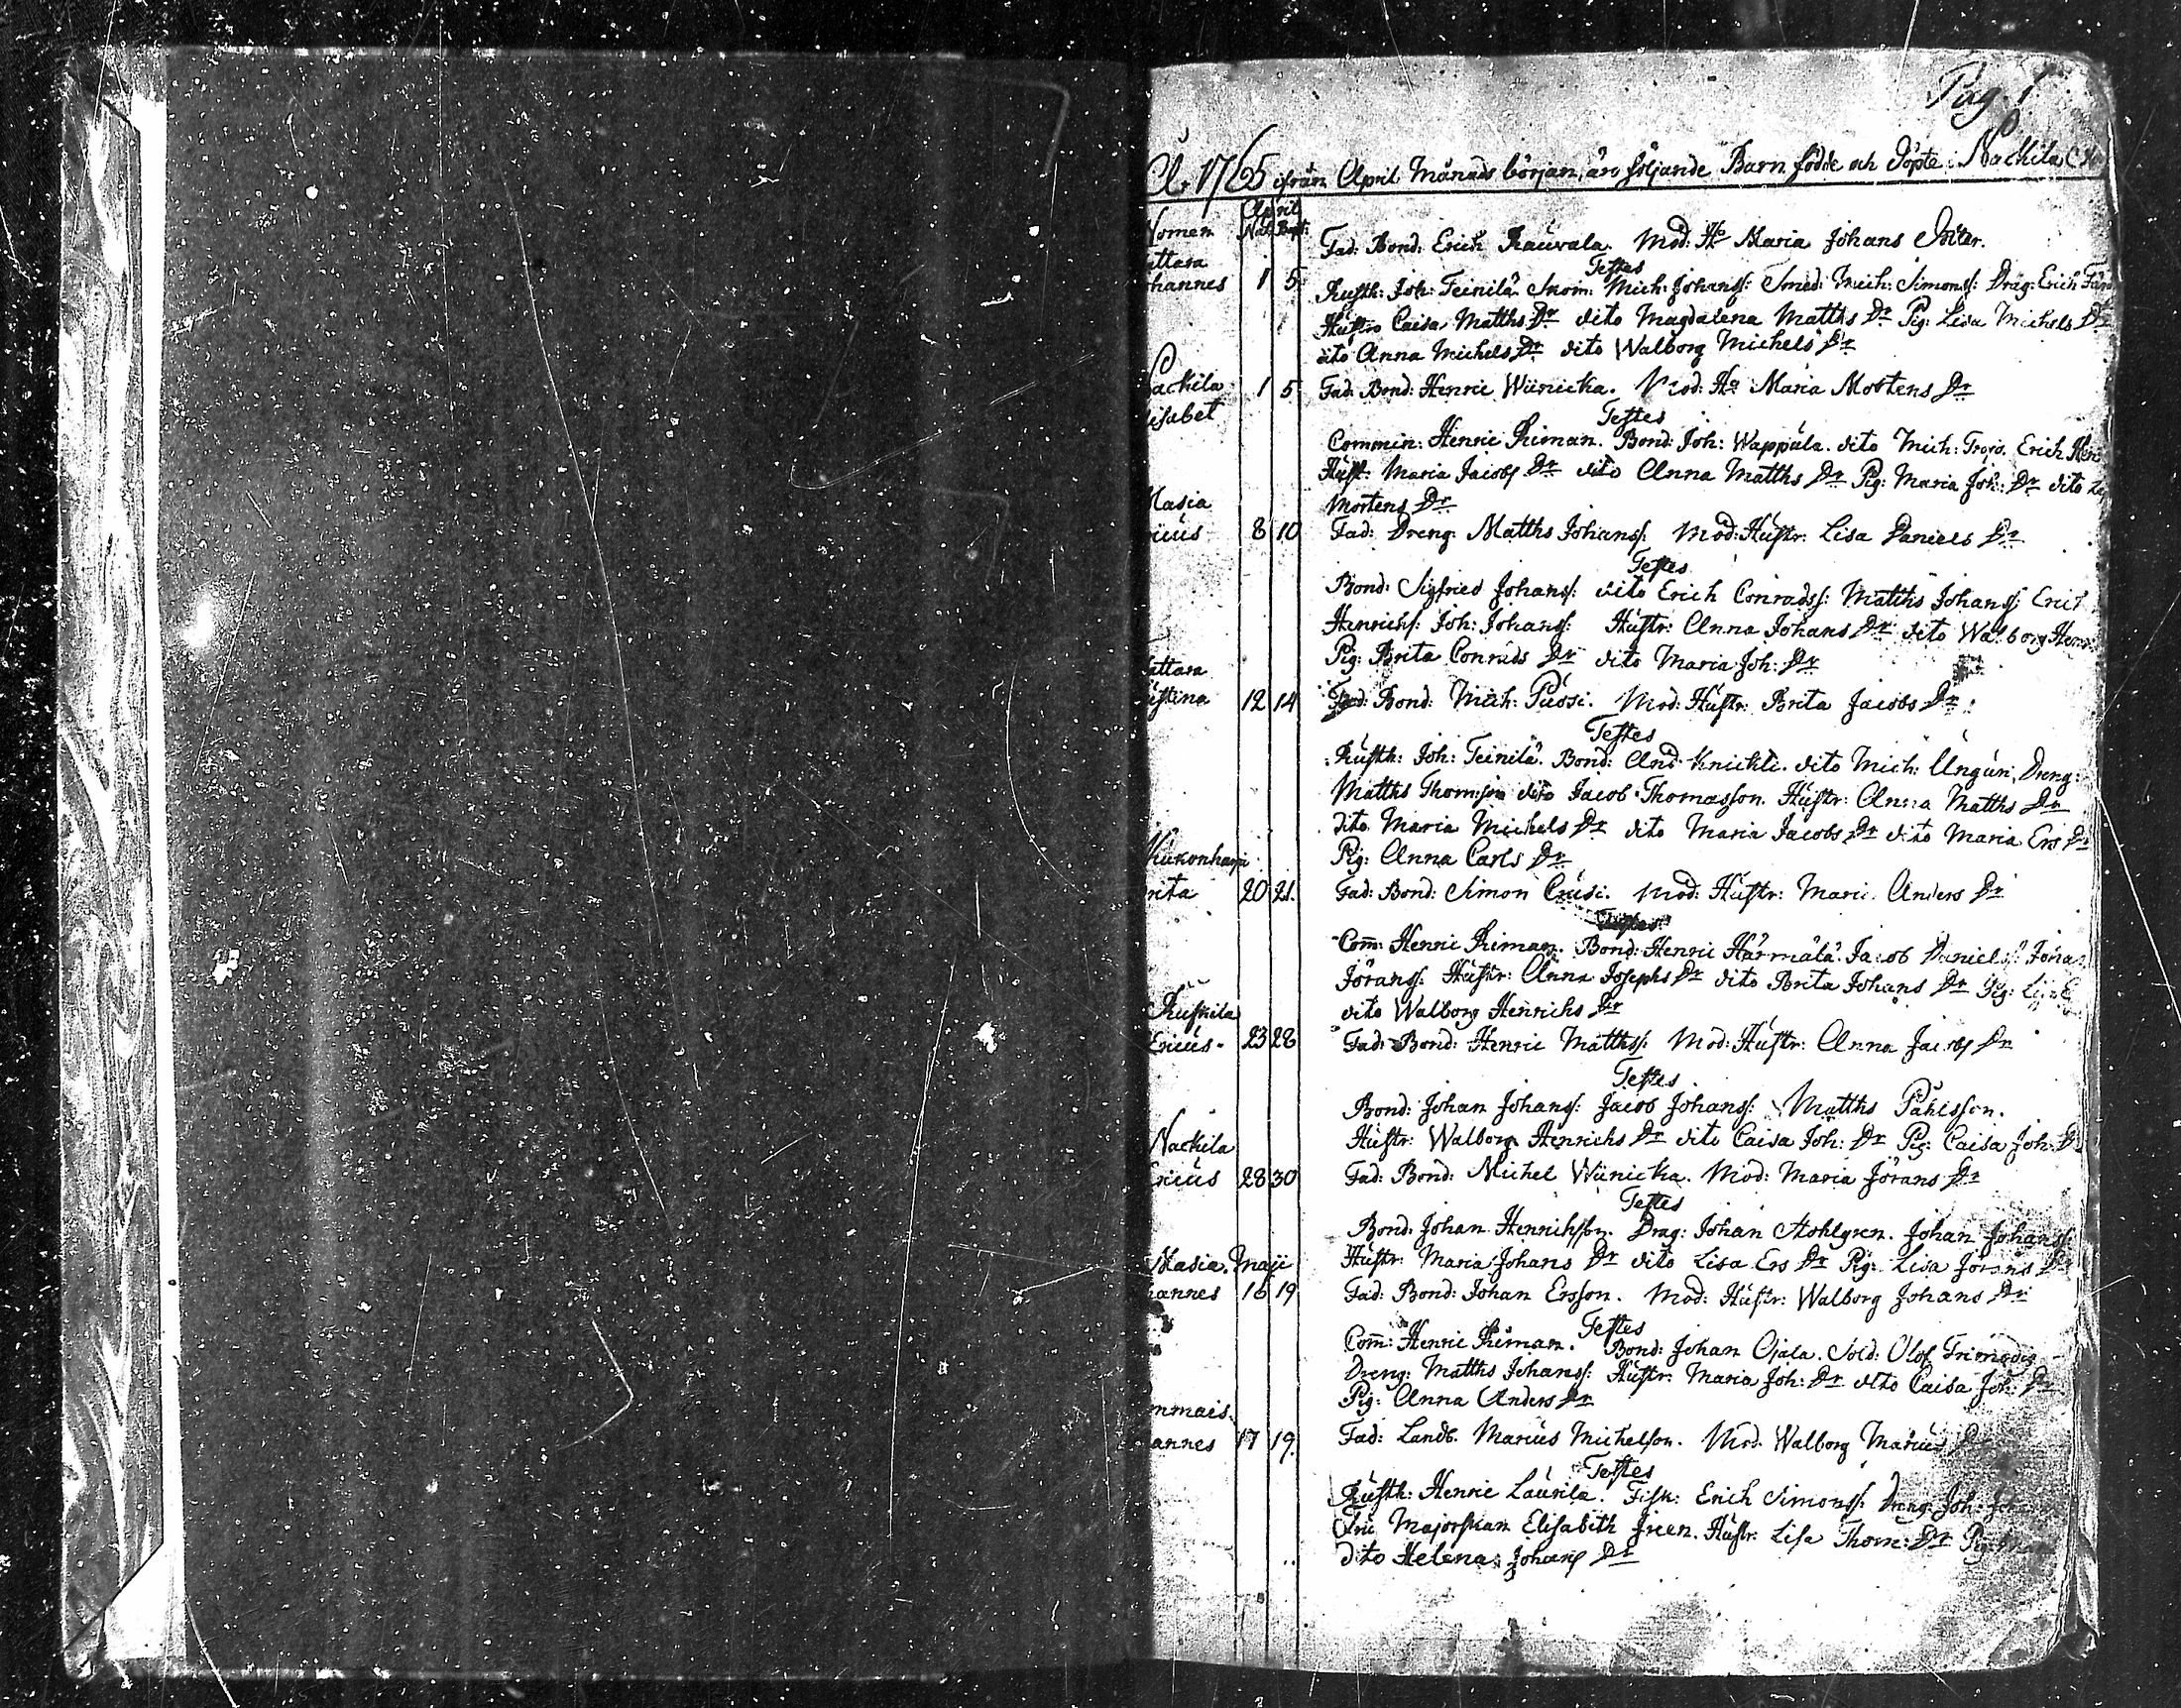 Pag. 1
År 1765 ifrån April Månads början, äro följande Barn födde och Döpte i Nackila
April
Nomen Nat. Bapt:
attara
hannes 1 5 Fad: Bond: Erich Rauvala. Mod: H:o Maria Johans Doter.
Testes
Rusth: Joh: Teinilä. Skom: Mich: Johanss: Smed: Mich: Simonss: Dräg: Erich
Hustro Caisa Matths Dr dito Magdalena Matths Dr Pig: Lisa Michels Dr
dito Anna Michels Dr dito Walborg Michels Dr
ackila 1 5 Fad: Bond: Henric Wiinicka. Mod: H:o Maria Mortens Dr
isabet
Testes
Commin: Henric Riman. Bond: Joh: Wappula. dito Mich: Erich
Hust: Maria Jacobs Dr dito Anna Matths Dr Pig: Maria Joh: Dr dito
Mortens Dr
Masia
ricus 8 10 Fad: Dreng: Matths Johanss: Mod: Hustr: Lisa Daniels Dr
Testes
Bond: Sigfried Johanss: dito Erich Conradss: Matths Johanss: Erich
Henrichs: Joh: Johanss: Hustr: Anna Johans Dr dito Walborg
Pig: Brita Conrads Dr dito Maria Joh: Dr
attara
istina 12 14 Fad: Bond: Mich: Pussi. Mod: Hustr: Brita Jacobs Dr
Testes
Rusth: Joh: Teinilä. Bond: And: Knickti. dito Mich: Ungun, Dreng:
Matths Thomsson dito Jacob Thomasson. Hustr: Anna Matths Dr
dito Maria Michels Dr dito Maria Jacobs Dr dito Maria Ers Dr
Pig: Anna Carls Dr
Kukonharja
rita 20 21. Fad: Bond: Simon Cusi. Mod: Hustr: Mari. Anders Dr
Testes
Com: Henric Riman. Bond: Henric Härmälä. Jacob Daniels:
Jörans: Hustr: Anna Josephs Dr dito Brita Johans Dr Pig:
dito Walborg Henrichs Dr
Ruskila
Ericus 23 28 Fad: Bond: Henric Mattss: Mod: Hustr: Anna Jacobs Dr
Testes
Bond: Johan Johanss: Jacob Johanss: Matths Påhlsson.
Hustr: Walborg Henrichs Dr dito Caisa Joh: Dr Pig: Caisa Joh: D
Nackila
Ericus 28 30 Fad: Bond: Michel Wiinicka. Mod: Maria Jörans Dr
Testes
Bond: Johan Henrichsson. Drag: Johan Stohlgren. Johan Johanss:
Hustr: Maria Johans Dr dito Lisa Ers Dr Pig: Lisa Jörans Dr
Masia. Maji
hannes 16 19 Fad: Bond: Johan Ersson. Mod: Hustr: Walborg Johans Dr
Testes
Com: Henric Riman. Bond: Johan Ojala. Sold: Olof
Dreng: Matths Johanss: Hustr: Maria Joh: Dr dito Caisa Joh: Dr
Pig: Anna Anders Dr
mmais.
annes 17 19. Fad: Landb. Marius Michelson. Mod. Walborg Marius
Testes
Rusth: Henric Laurila. Fisk: Erich Simonss: Dreng: Joh:
Fru Majorskan Elisabeth Hustr: Lisa Thom: Dr Pig:
dito Helena Johans Dr